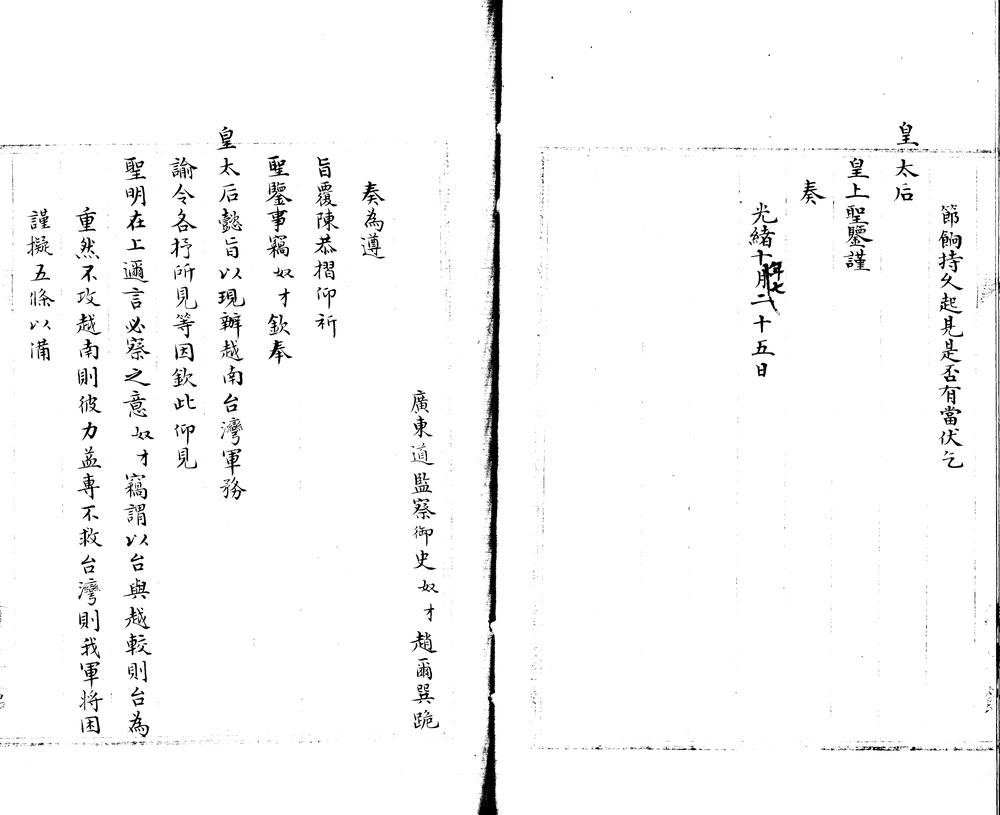 節餉持久起見是否有當伏乞
皇太后
皇上聖鑒謹
奏
光緒十年七月二十五日
廣東道監察御史奴才趙爾巽跪
奏為遵
旨覆陳恭摺仰祈
聖鑒事竊奴才欽奉
皇太后懿旨以現辦越南台灣軍務
諭令各抒所見等因欽此仰見
聖明在上邇言必察之意奴才竊謂以台與越較則台為
重然不攻越南則彼力益專不救台灣則我軍將困
謹擬五條以備